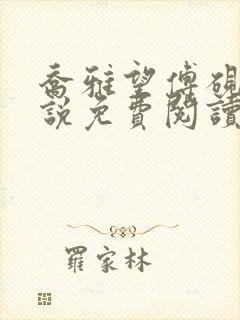 喬雅望傅硯
說免費閱讀
羅家林